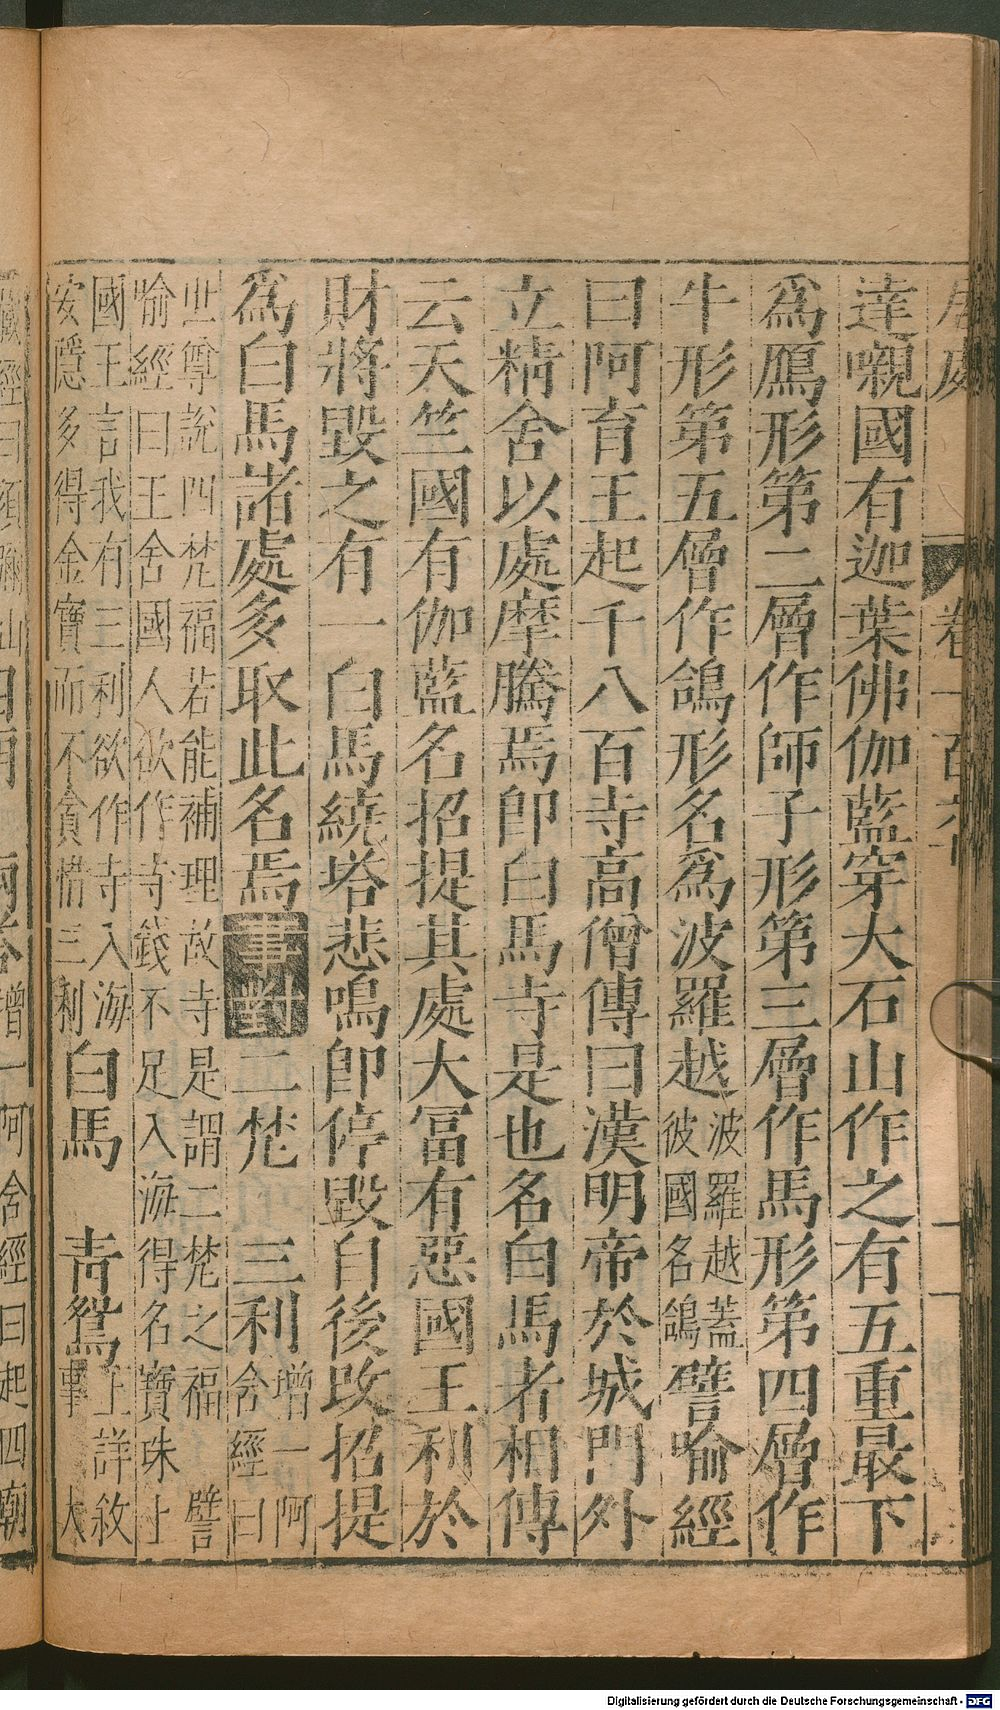 達嚫國有迦葉佛伽藍穿大石山作之有五重最下
為鴈形第二層作師子形第三層作馬形第四層作
牛形第五層作鴿形名為波羅越波羅越蓋彼國名鴿譬喻經
曰阿育王起千八百寺高僧傳曰漢明帝於城門外
立精舍以處摩騰焉即白馬寺是也名白馬者相傳
云天竺國有伽藍名招提其處大冨有惡國王利於
財將毀之有一白馬繞塔悲鳴即停毀自後改招提
為白馬諸處多取此名焉事對二梵 三利增一阿含經曰
世尊說四梵福若能補理故寺是謂二梵之福 譬
喻經曰王舍國人欲作寺錢不足入海得名寶珠上
國王言我有三利欲作寺入海
安隱多得金寶而不貪惜三利白馬 青鴛上詳敘事 大
Digitalisierung gefördert durch die Deutsche Forschungsgemeinschaft - DFG